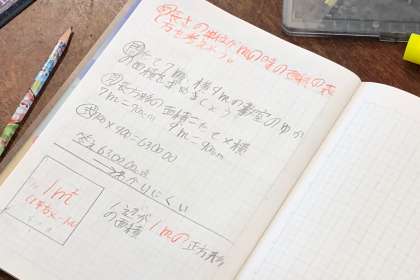 め 長さの単位がmの時の面積の求
め方を考えよう。
問 たて7m、横9mの教室のゆか
の面積を求めましょう
長方形の面積=たて×横
7m=700cm 9m=900cm
式 700×900=630000
答え 630000
わかりにくい
1m²
1辺が1mの正方形
の面積